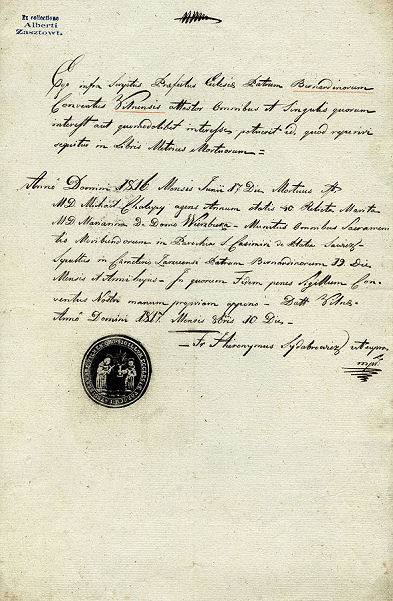 Ex collectione
Alberti
Zasztowt.
Ego infra Scriptus Praefectus Eclesiae Patrum Bernardinorum
Conventus Vilnensis attestor Omnibus et Singulis quorum
interest aut quomodolibet interesse potuerit id, quod reperiri
sequitur in Libris Metrices Mortuorum =
Anno Domini 1816 Mensis Junii 17 Die Mortuus
MD Michael agens Annum aetatis 80 Relicta Marita
MD Marianna D. Domo Munitus Omnibus Sacramen
tis Moribundorum in Parochia S Casimiri de
Sepultus in Patrum Bernardinorum 19 Die
Mensis et Anni In quorum Fidem penes Sigillum Con-
ventus Nostri manum propriam appono - Datt Vilnae
Anno Domini 1817. Mensis 10 Die -
Fr Hieronymus ut supra
mpr